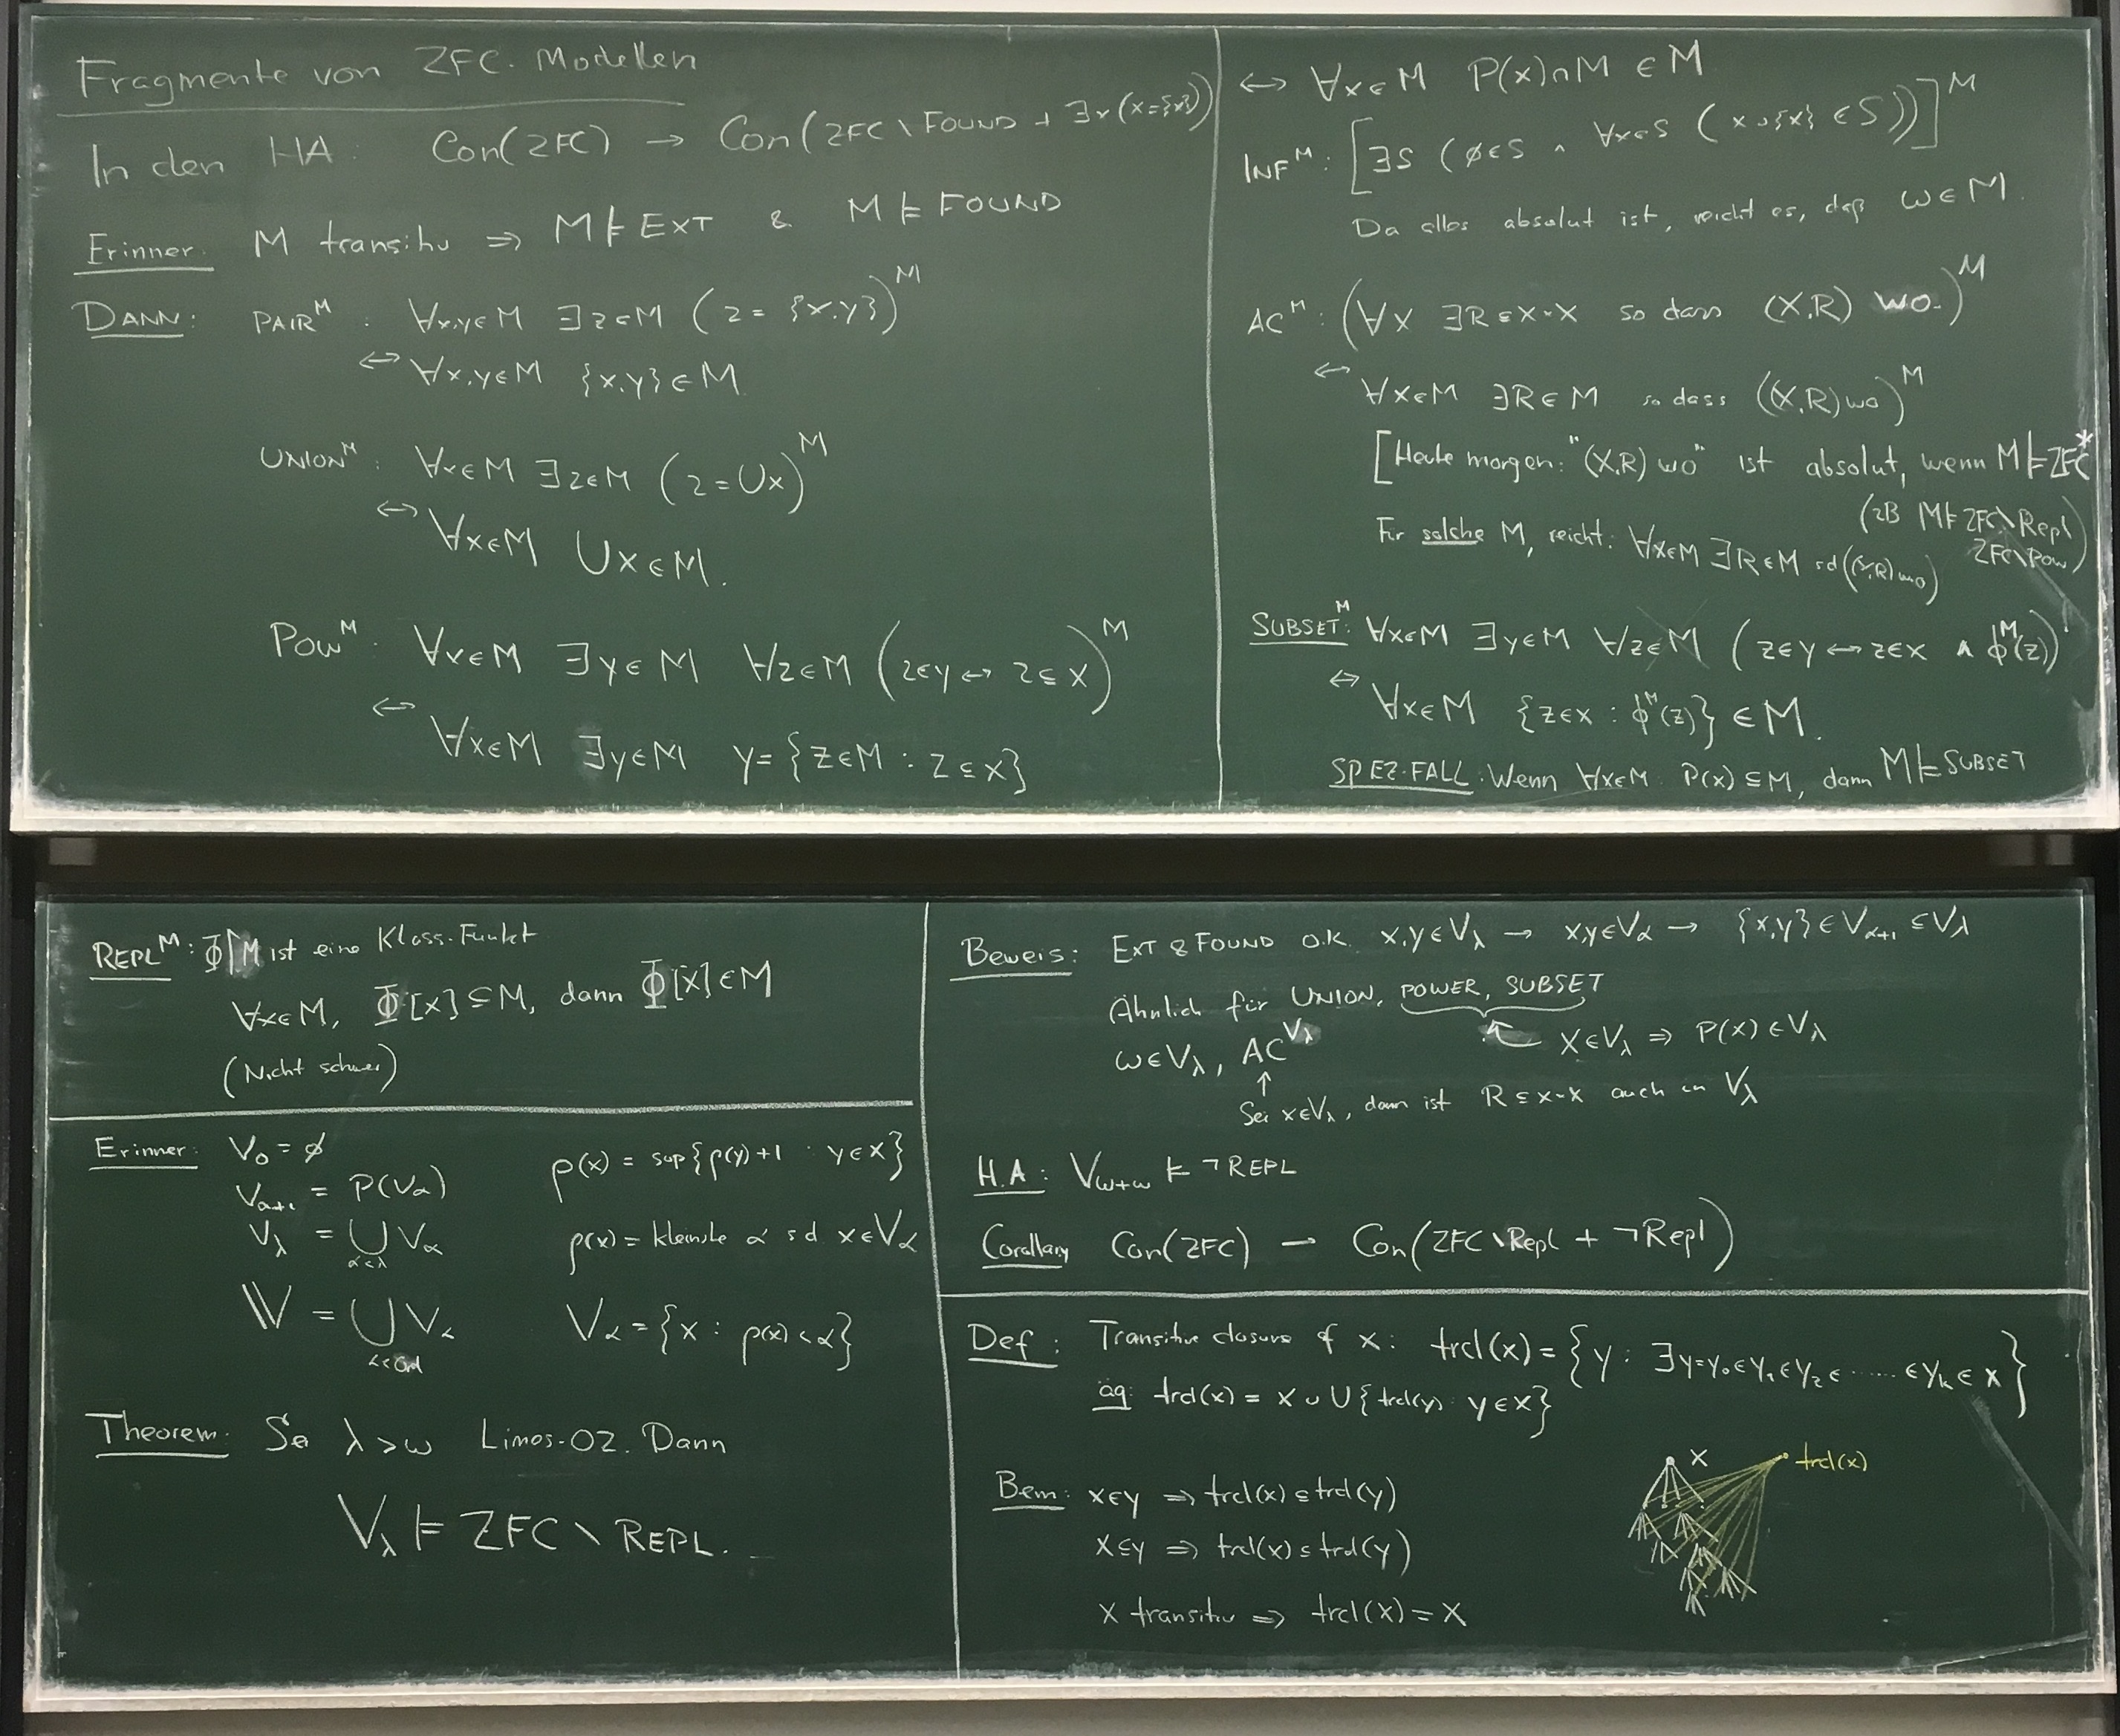 Fragmente von ZFC-Modellen
In den HA: Con(ZFC) → Con(ZFC \ FOUND + ∃x(x={x}))
Erinner. M transitiv ⇒ M ⊨ EXT & M ⊨ FOUND
DANN: PAIR^M : ∀x,y∈M ∃z∈M (z = {x,y})^M
↔ ∀x,y∈M {x,y}∈M.
UNION^M : ∀x∈M ∃z∈M (z=∪x)^M
↔ ∀x∈M ∪x∈M.
POW^M : ∀x∈M ∃y∈M ∀z∈M (z∈y ↔ z⊆x)^M
↔ ∀x∈M ∃y∈M y={z∈M : z⊆x}
↔ ∀x∈M P(x)∩M ∈ M
INF^M : [∃S (∅∈S ∧ ∀x∈S (x∪{x} ∈S))]^M
Da alles absolut ist, reicht es, daß ω∈M.
AC^M : (∀X ∃R⊆X×X so dass (X,R) wo.)^M
↔ ∀x∈M ∃R∈M so dass ((X,R) wo)^M
[Heute morgen: "(X,R) wo" ist absolut, wenn M⊨ZFC*
(zB M⊨ZFC\Repl
ZFC\Pow)
Für solche M, reicht: ∀x∈M ∃R∈M sd ((X,R) wo)
SUBSET^M: ∀x∈M ∃y∈M ∀z∈M (z∈y ↔ z∈x ∧ ϕ^M(z))
↔ ∀x∈M {z∈x : ϕ^M(z)} ∈ M.
SPEZ.FALL: Wenn ∀x∈M P(x)⊆M, dann M⊨SUBSET
REPL^M: Φ↾M ist eine Klass.Funkt
∀x∈M, Φ[x]⊆M, dann Φ[x]∈M
(Nicht schwer)
Erinner: V₀ = ∅
V_{α+1} = P(V_α)
V_λ = ∪_{α<λ} V_α
𝕍 = ∪_{α∈Ord} V_α
ρ(x) = sup{ρ(y)+1 : y∈x}
ρ(x) = kleinste α sd x∈V_α
V_α = {x : ρ(x)<α}
Theorem: Sei λ>ω Limes-OZ. Dann
V_λ ⊨ ZFC \ REPL.
Beweis: EXT & FOUND o.k. x,y∈V_λ → x,y∈V_α → {x,y}∈V_{α+1} ⊆V_λ
Ähnlich für UNION, POWER, SUBSET
X∈V_λ ⇒ P(x)∈V_λ
ω∈V_λ, AC^{V_λ}
↑
Sei x∈V_λ, dann ist R⊆x×x auch in V_λ
H.A: V_{ω+ω} ⊨ ¬REPL
Corollary Con(ZFC) → Con(ZFC\Repl + ¬Repl)
Def: Transitive closure of x: trcl(x) = {y: ∃y=y₀∈y₁∈y₂∈ ...... ∈y_k∈x}
äq: trcl(x) = x ∪ ∪{trcl(y): y∈x}
Bem: x∈y ⇒ trcl(x)⊆trcl(y)
x⊆y ⇒ trcl(x)⊆trcl(y)
x transitiv ⇒ trcl(x)=x
x
trcl(x)